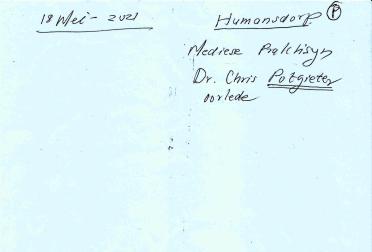 18 Mei - 2021
Humansdorp. P
Mediese Praktisyn
Dr. Chris Potgieter
oorlede